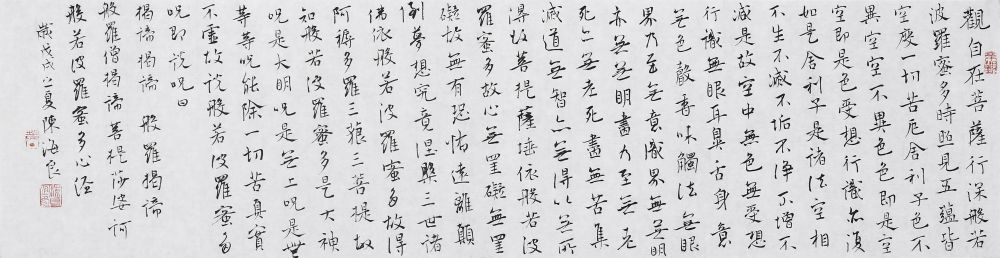 觀自在菩薩行深般若
波羅蜜多時照見五蘊皆
空度一切苦厄舍利子色不
異空空不異色色即是空
空即是色受想行識亦復
如是舍利子是諸法空相
不生不滅不垢不淨不增不
減是故空中無色無受想
行識無眼耳鼻舌身意
無色聲香味觸法無眼
界乃至無意識界無無明
亦無無明盡乃至無老
死亦無老死盡無苦集
滅道無智亦無得以無所
得故菩提薩埵依般若波
羅蜜多故心無罣礙無罣
礙故無有恐怖遠離顛
倒夢想究竟涅槃三世諸
佛依般若波羅蜜多故得
阿耨多羅三藐三菩提故
知般若波羅蜜多是大神
呪是大明呪是無上呪是無
等等呪能除一切苦真實
不虛故說般若波羅蜜多
呪即說呪曰
揭諦揭諦 般羅揭諦
般羅僧揭諦菩提莎婆訶
般若波羅蜜多心經
歲戊戌之夏陳海良